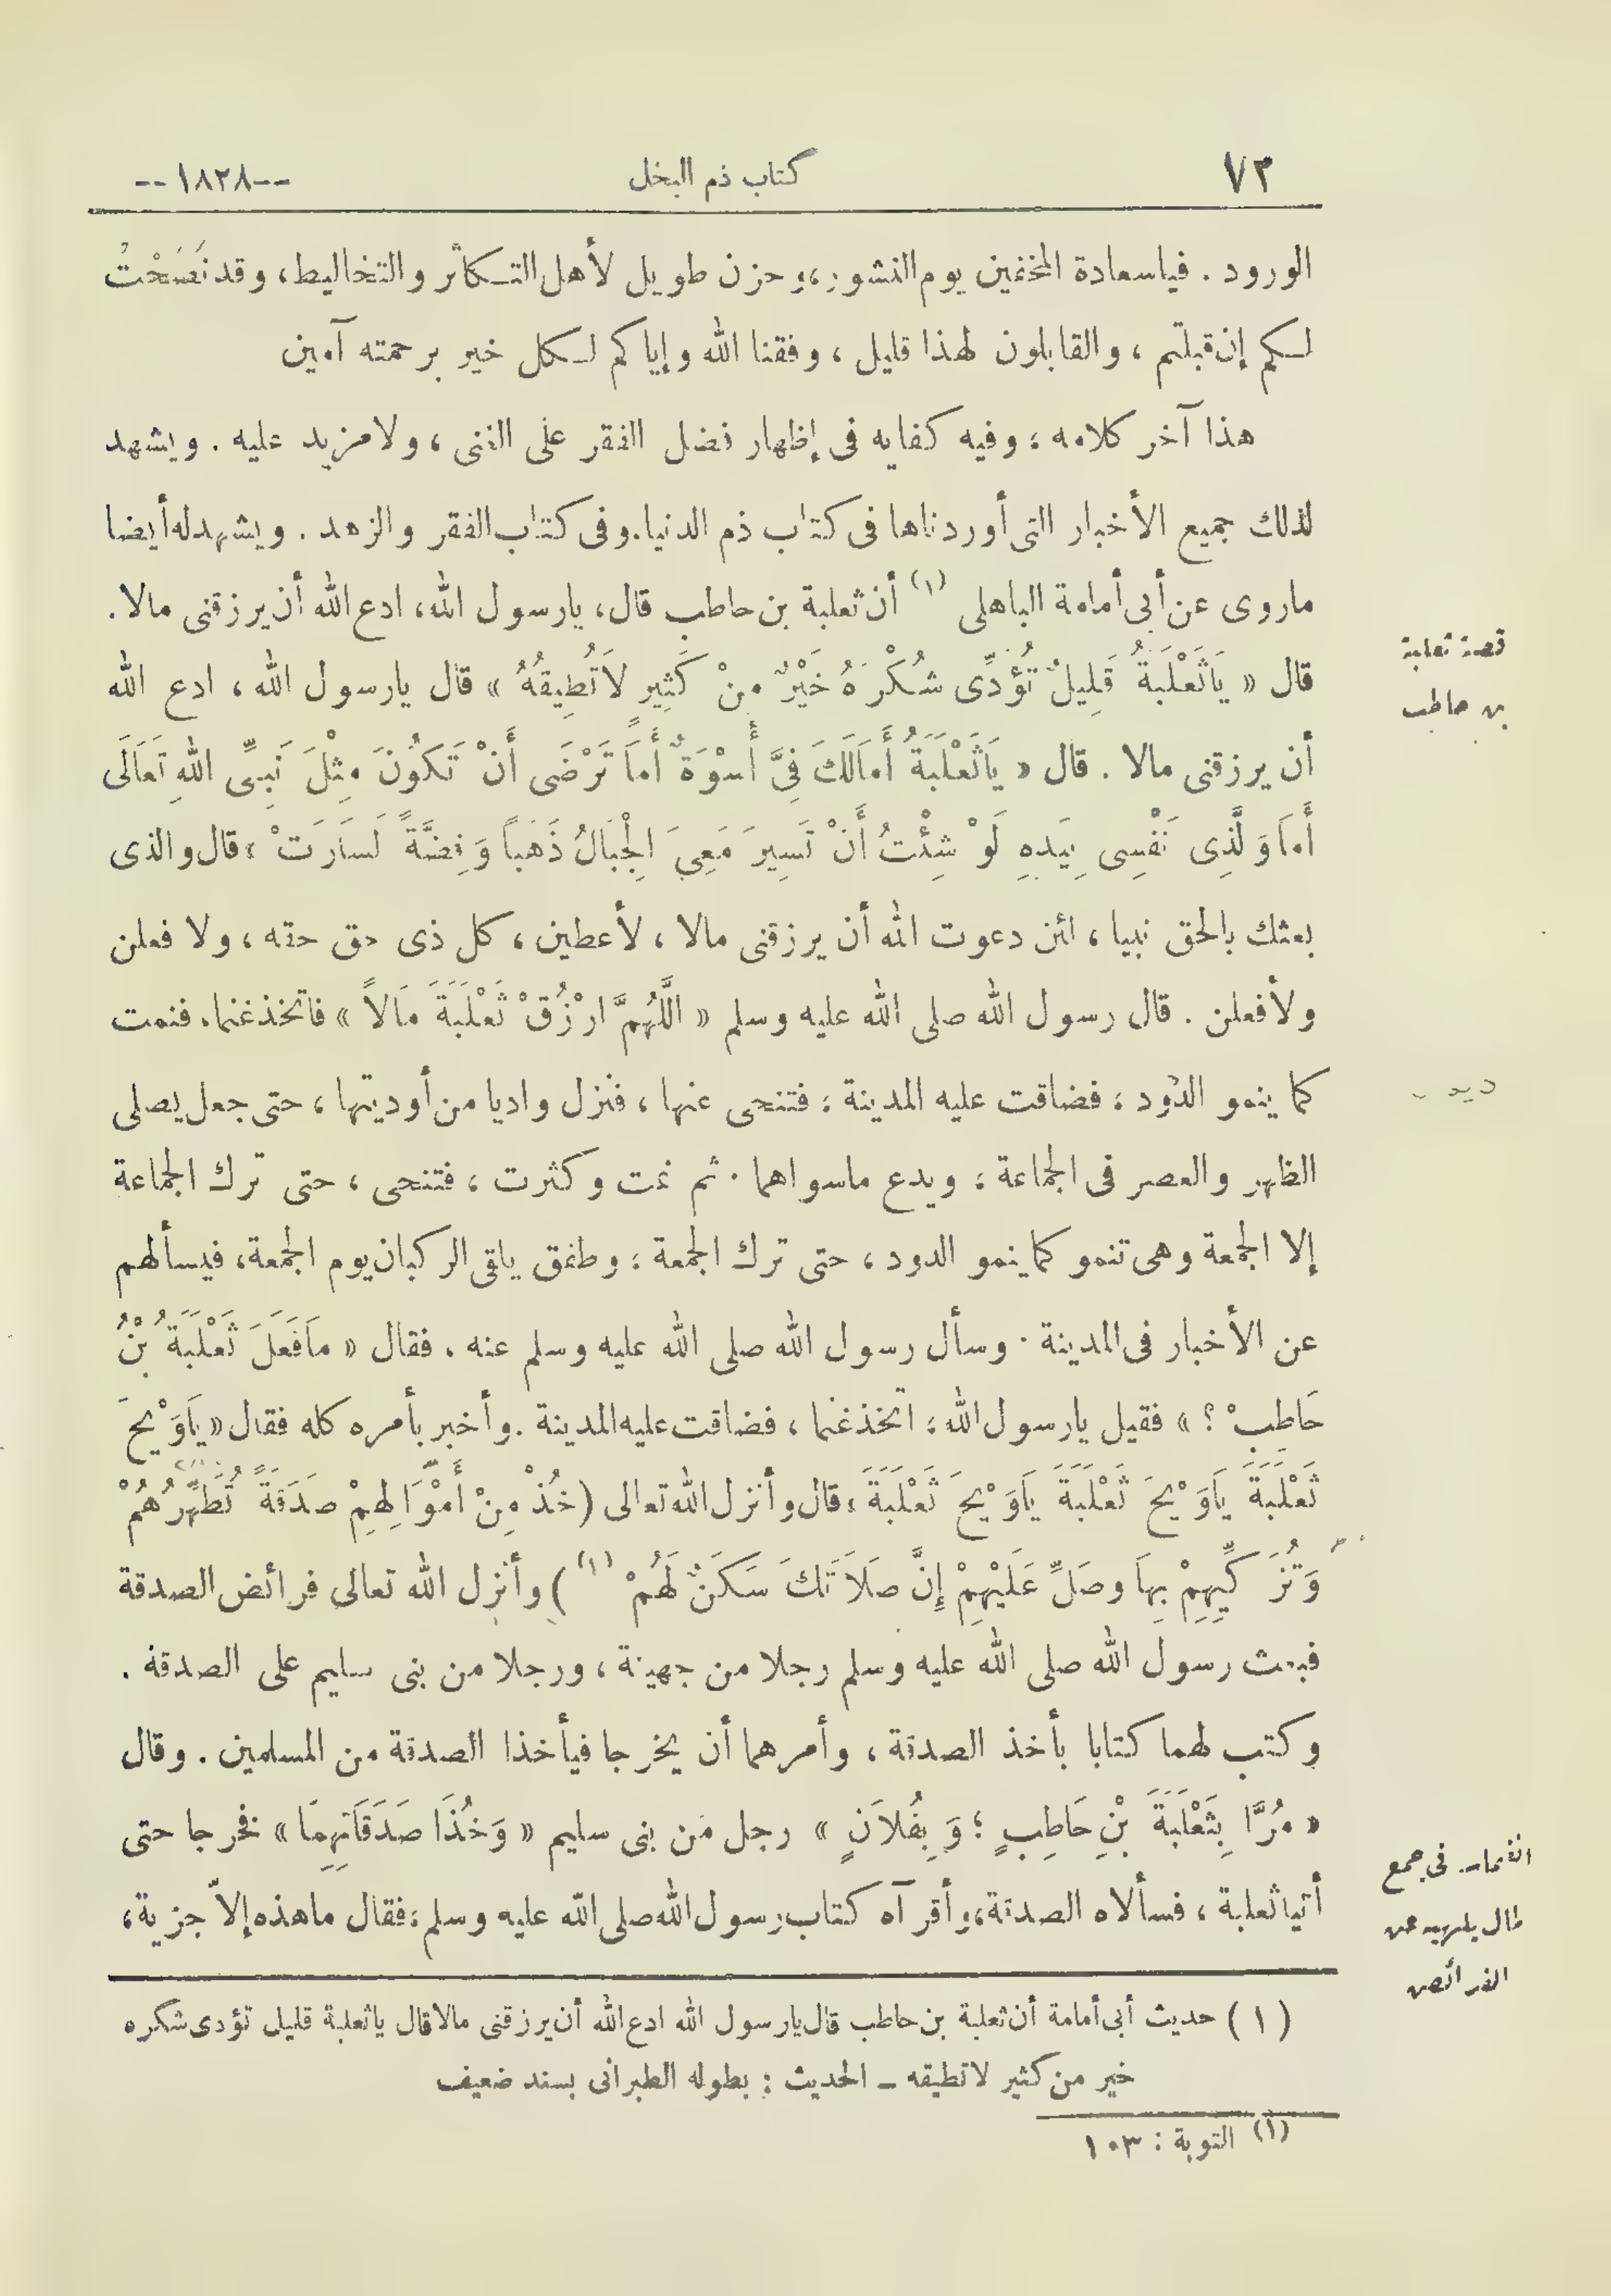 ٧٣
كتاب ذم البخل
--١٨٢٨--
الورود . فياسعادة المخفين يوم النشور، وحزن طويل لأهل التكاثر والتخاليط، وقد نَصَحْتُ
لكم إن قبلتم ، والقابلون لهذا قليل ، وفقنا الله وإياكم لكل خير برحمته آمين
هذا آخر كلامه ، وفيه كفايه فى إظهار فضل الفقر على الغنى ، ولا مزيد عليه . ويشهد
لذلك جميع الأخبار التى أوردناها فى كتاب ذم الدنيا. وفى كتاب الفقر والزهد . ويشهد له أيضا
ماروى عن أبى أمامة الباهلى (١) أن ثعلبة بن حاطب قال، يارسول الله، ادع الله أن يرزقنى مالا.
قال « يَاثَعْلَبَةُ قَلِيلٌ تُؤَدِّى شُكْرَهُ خَيْرٌ مِنْ كَثِيرٍ لاَتُطِيقُهُ » قال يارسول الله ، ادع الله
أن يرزقنى مالا . قال « يَاثَعْلَبَةُ أَمَالَكَ فِىَّ أُسْوَةٌ أَمَا تَرْضَى أَنْ تَكُونَ مِثْلَ نَبِىِّ اللهِ تَعَالَى
أَمَا وَالَّذِى نَفْسِى بِيَدِهِ لَوْ شِئْتُ أَنْ تَسِيرَ مَعِىَ الْجِبَالُ ذَهَباً وَفِضَّةً لَسَارَتْ » قال والذى
بعثك بالحق نبيا ، لئن دعوت الله أن يرزقنى مالا ، لأعطين ، كل ذى حق حقه ، ولا فعلن
ولأفعلن . قال رسول الله صلى الله عليه وسلم « اللَّهُمَّ ارْزُقْ ثَعْلَبَةَ مَالاً » فاتخذ غنما. فنمت
كما ينمو الدُود ، فضاقت عليه المدينة ، فتنحى عنها ، فنزل واديا من أوديتها ، حتى جعل يصلى
الظهر والعصر فى الجماعة ، ويدع ماسواهما . ثم نمت وكثرت ، فتنحى ، حتى ترك الجماعة
إلا الجمعة وهى تنمو كما ينمو الدود ، حتى ترك الجمعة ، وطفق يلقى الركبان يوم الجمعة، فيسألهم
عن الأخبار فى المدينة . وسأل رسول الله صلى الله عليه وسلم عنه . فقال « مَافَعَلَ ثَعْلَبَةُ بْنُ
حَاطِبْ ؟ » فقيل يارسول الله ، اتخذ غنما ، فضاقت عليه المدينة . وأخبر بأمره كله فقال « يَاوَيْحَ
ثَعْلَبَةَ يَاوَيْحَ ثَعْلَبَةَ يَاوَيْحَ ثَعْلَبَةَ » قال وأنزل الله تعالى (خُذْ مِنْ أَمْوَالِهِمْ صَدَقَةً تُطَهِّرُهُمْ
وَتُزَكِّيهِمْ بِهَا وصَلِّ عَلَيْهِمْ إِنَّ صَلَاتَكَ سَكَنٌ لَهُمْ (١) ) وأنزل الله تعالى فرائض الصدقة
فبعث رسول الله صلى الله عليه وسلم رجلا من جهينة ، ورجلا من بنى سليم على الصدقة .
وكتب لهما كتابا بأخذ الصدقة ، وأمرهما أن يخرجا فيأخذا الصدقة من المسلمين . وقال
« مُرَّا بِثَعْلَبَةَ بْنِ حَاطِبٍ ؛ وَبِفُلاَنٍ » رجل من بنى سليم « وَخُذَا صَدَقَاتِهِمَا » فخرجا حتى
أتيا ثعلبة ، فسألاه الصدقة، وأقرآه كتاب رسول الله صلى الله عليه وسلم، فقال ماهذه إلاّ جزية،
قصة ثعلبة
بن حاطب
انغماس فى جمع
المال يلهيه عن
الفرائض
(١) حديث أبى أمامة أن ثعلبة بن حاطب قال يارسول الله ادع الله أن يرزقنى مالا قال ياثعلبة قليل تؤدى شكره
خير من كثير لا تطيقه ــ الحديث : بطوله الطبرانى بسند ضعيف
(١) التوبة : ١٠٣